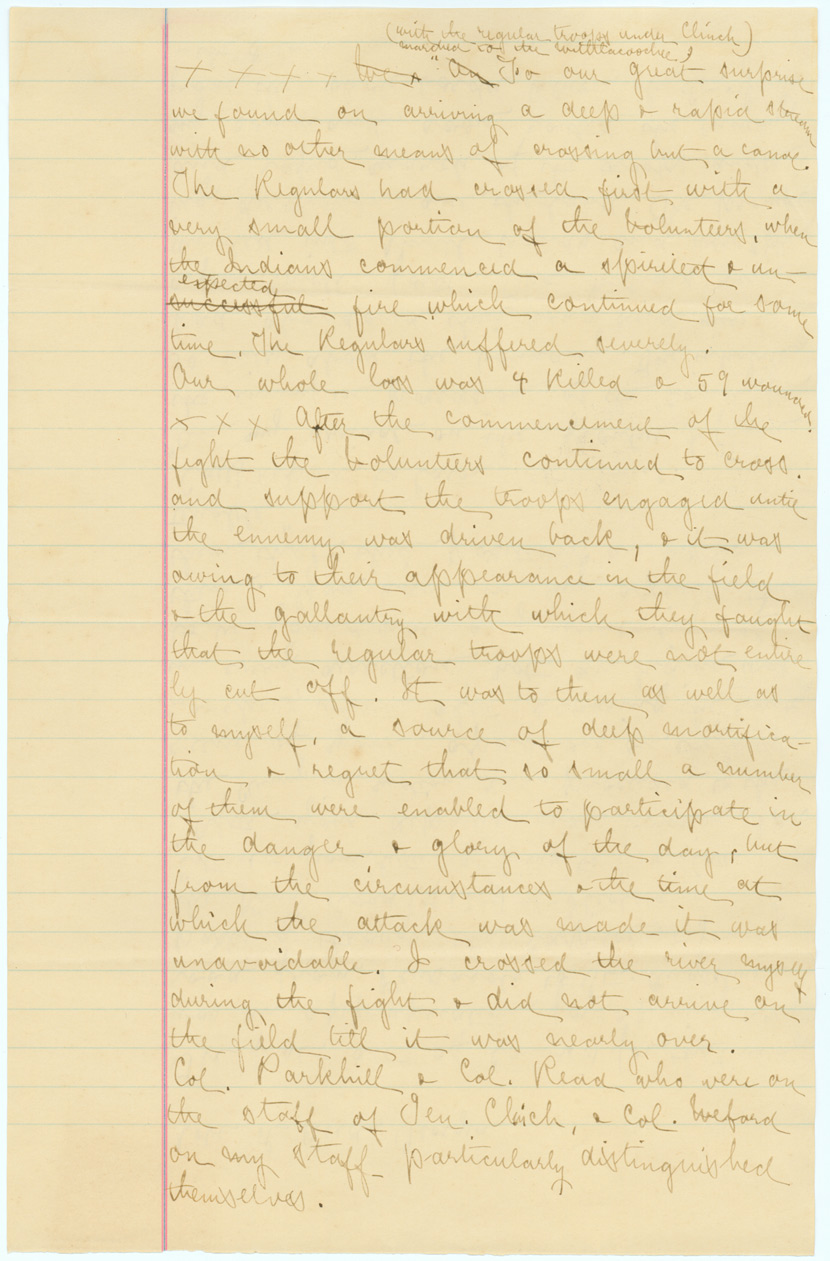 (with the regular troops under Clinch)
marched to the Withlacoochee,
x x x x We " On To our great surprise
we found on arriving a deep & rapid stream
with no other means of crossing but a canoe.
The Regulars had crossed first with a
very small portion of the Volunteers, when
the Indians commenced a spirited & un-
expected
successful fire which continued for some
time. The Regulars suffered severely.
Our whole loss was 4 killed & 59 wounded.
x x x After the commencement of the
fight the Volunteers continued to cross.
and support the troops engaged until
the ennemy was driven back, & it was
owing to their appearance in the field
& the gallantry with which they fought
that the regular troops were not entire
ly cut off. It was to them as well as
to myself, a source of deep mortifica-
tion & regret that so small a number
of them were enabled to participate in
the danger & glory of the day, but
from the circumstances & the time at
which the attack was made it was
unavoidable. I crossed the river myself
during the fight & did not arrive on
the field till it was nearly over.
Col. Parkhill & Col. Read who were on
the staff of Gen. Clinch, & Col. Weford
on my staff - particularly distinguished
themselves.